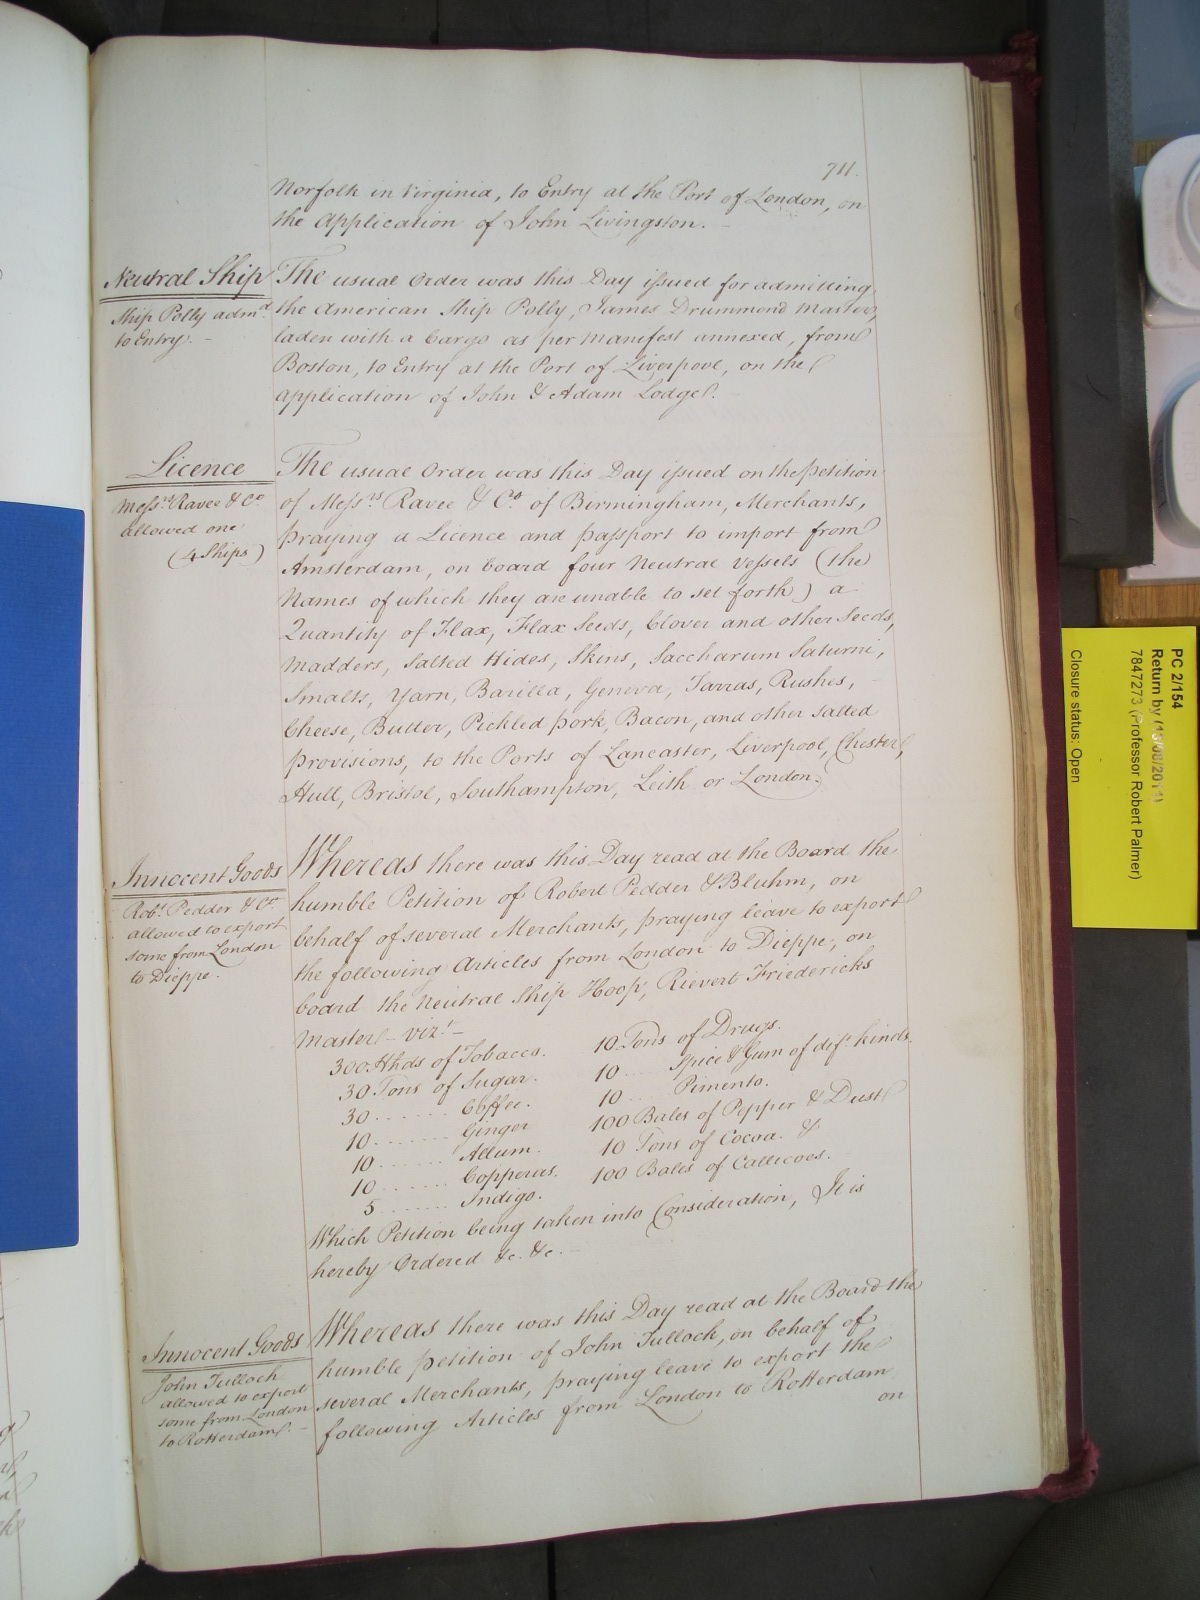 711.
Norfolk in Virginia, to Entry at the Port of London, on
the Application of John Livingston. -
Neutral Ship
Ship Polly adm.d
to Entry. -
The usual Order was this Day issued for admitting
the American Ship Polly, James Drummond Master,
laden with a Cargo as per Manifest annexed, from
Boston, to Entry at the Port of Liverpool, on the
Application of John & Adam Lodge.
Licence
Mess.rs Ravee & Co
allowed one
(4 Ships)
The usual Order was this Day issued on the Petition
of Mess.rs Ravee & Co. of Birmingham, Merchants,
praying a Licence and Passport to import from
Amsterdam, on board four Neutral Vessels (the
Names of which they are unable to set forth) a
Quantity of Flax, Flax Seeds, Clover and other Seeds,
Madders, Salted Hides, Skins, Saccharum Saturni,
Smalts, Yarn, Barilla, Geneva, Tarras, Rushes, -
Cheese, Butter, Pickled Pork, Bacon, and other Salted
Provisions, to the Ports of Lancaster, Liverpool, Chester,
Hull, Bristol, Southampton, Leith or London.
Innocent Goods
Rob.t Pedder & Co.
allowed to export
some from London
to Dieppe.
Whereas there was this Day read at the Board the
humble Petition of Robert Pedder & Bluhm, on
behalf of several Merchants, praying leave to export
the following Articles from London to Dieppe, on
board the Neutral Ship Hoop, Rievert Friedericks
Master - viz.t -
300 Hhds of Tobacco. 10 Tons of Drugs.
30 Tons of Sugar. 10 .... Spice & Gum of dif.t kinds.
30 ....... Coffee. 10 .... Pimento.
10 ....... Ginger 100 Bales of Pepper & Dust
10 ....... Allum. 10 Tons of Cocoa. &
10 ....... Copperas. 100 Bales of Callicoes.
5 ....... Indigo.
Which Petition being taken into Consideration, It is
hereby Ordered &c. &c. -
Innocent Goods
John Tulloch
allowed to export
some from London
to Rotterdam. -
Whereas there was this Day read at the Board the
humble petition of John Tulloch, on behalf of
several Merchants, praying leave to export the
following Articles from London to Rotterdam
on
PC 2/154
Return by (15/08/2011)
7847273 (Professor Robert Palmer)
Closure status: Open